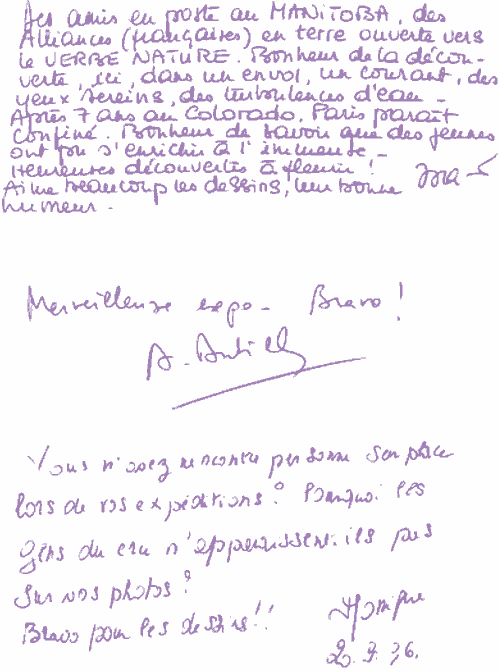 des amis en poste au MANITOBA, des
Alliances (françaises) en terre ouverte vers
le VERBE NATURE. Bonheur de la décou-
verte, ici, dans un envol, un courant, des
yeux sereins, des turbulences d'eau -
Après 7 ans au Colorado, Paris paraît
confiné. Bonheur de savoir que des jeunes
ont pu s'enrichir à l'immense -
Heureuses découvertes à fleurir !
Aime beaucoup les dessins, leur bonne
humeur.
Merveilleuse expo - Bravo !
A.
Vous n'avez rencontré personne sur place
lors de vos expéditions ? Pourquoi les
gens du cru n'apparaissent-ils pas
sur vos photos ?
Bravo pour les dessins !!